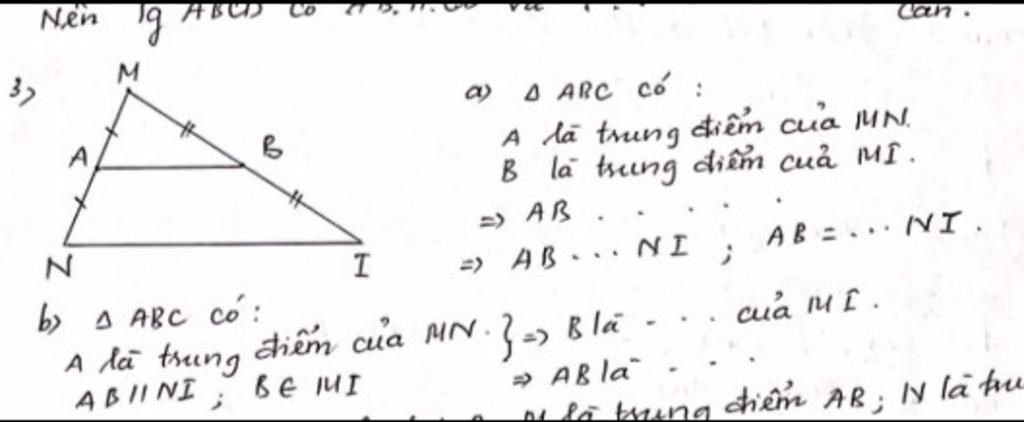 Nên Tg ABCD có AB // CD và
cân.
3)
M
A
B
N
I
a) Δ ABC có :
A là trung điểm của MN.
B là trung điểm của MI.
=> AB . . . . .
=> AB ... NI ; AB = ... NI.
b) Δ ABC có :
A là trung điểm của MN. } => B là . . . của MI.
AB // NI ; B ∈ MI => AB là . . .
M là trung điểm AB ; N là